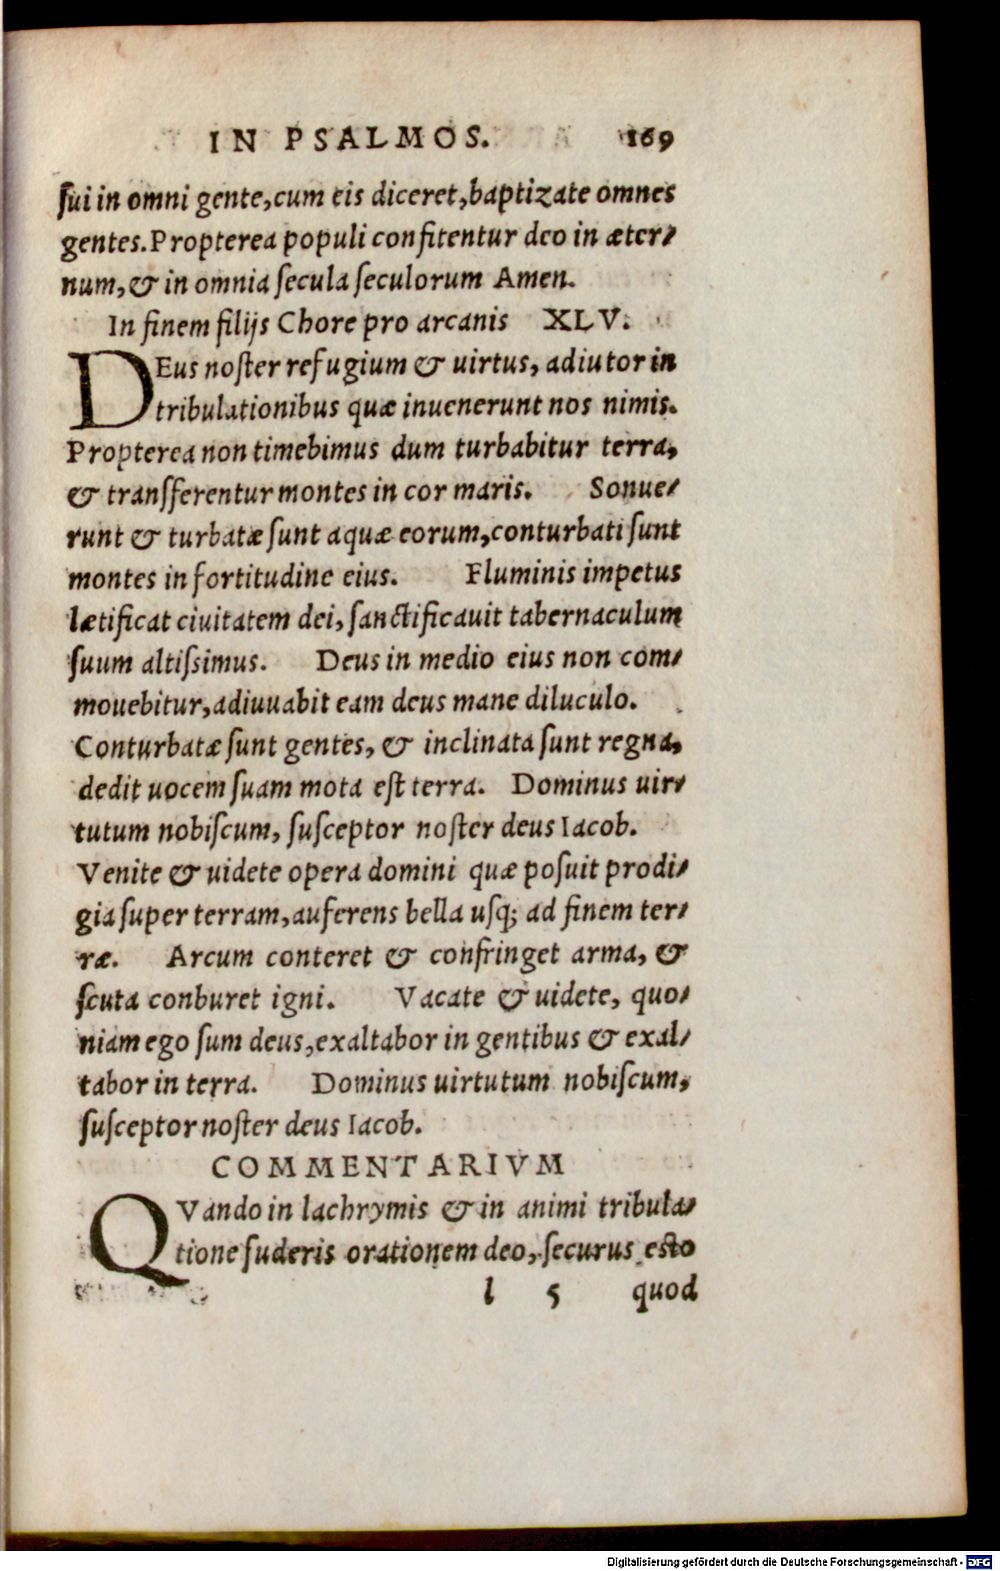 IN PSALMOS. 169
ſui in omni gente, cum eis diceret, baptizate omnes
gentes. Propterea populi confitentur deo in æter⸗
num, & in omnia ſecula ſeculorum Amen.
In finem filijs Chore pro arcanis XLV.
DEus noſter refugium & uirtus, adiutor in
tribulationibus quæ inuenerunt nos nimis.
Propterea non timebimus dum turbabitur terra,
& tranſferentur montes in cor maris. Sonue⸗
runt & turbatæ ſunt aquæ eorum, conturbati ſunt
montes in fortitudine eius. Fluminis impetus
lætificat ciuitatem dei, ſanctificauit tabernaculum
ſuum altiſsimus. Deus in medio eius non com⸗
mouebitur, adiuuabit eam deus mane diluculo.
Conturbatæ ſunt gentes, & inclinata ſunt regna,
dedit uocem ſuam mota eſt terra. Dominus uir⸗
tutum nobiſcum, ſuſceptor noſter deus Iacob.
Venite & uidete opera domini quæ poſuit prodi⸗
gia ſuper terram, auferens bella uſq; ad finem ter⸗
ræ. Arcum conteret & confringet arma, &
ſcuta conburet igni. Vacate & uidete, quo⸗
niam ego ſum deus, exaltabor in gentibus & exal⸗
tabor in terra. Dominus uirtutum nobiſcum,
ſuſceptor noſter deus Iacob.
COMMENTARIVM
QVando in lachrymis & in animi tribula⸗
tione fuderis orationem deo, ſecurus eſto
l 5 quod
Digitalisierung gefördert durch die Deutsche Forschungsgemeinschaft - DFG